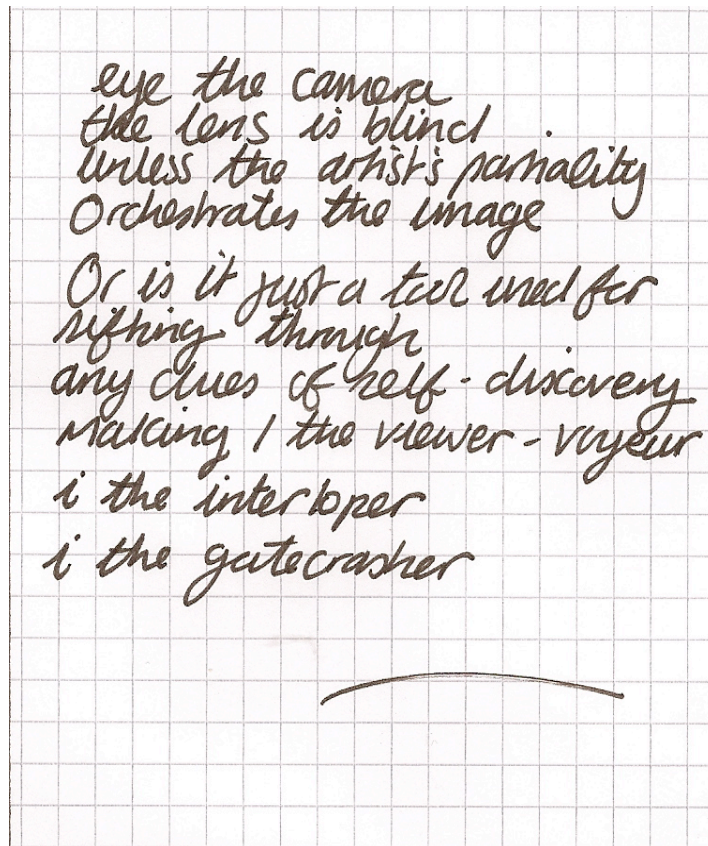 eye the camera
the lens is blind
unless the artist's partiality
Orchestrates the image
Or is it just a tool used for
sifting through
any clues of self-discovery
Making I the viewer-voyeur
i the interloper
i the gatecrasher